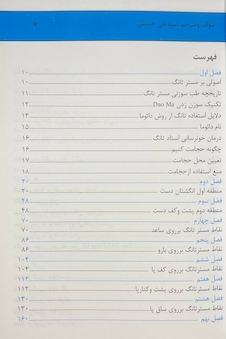 فهرست
فصل اول ۱۰
اصولی بر مستر تانگ ۱۰
تاریخچه طب سوزنی مستر تانگ ۱۰
تکنیک سوزن زدن Dao Ma ۱۲
دلایل استفاده تانگ از روش دائوما ۱۳
نام دائوما ۱۵
درمان خونرسانی استاد تانگ ۱۶
چگونه حجامت کنیم ۱۶
تعیین محل حجامت ۱۷
منع استفاده از حجامت ۱۸
فصل دوم ۲۰
منطقه اول انگشتان دست ۲۰
فصل سوم ۴۸
منطقه دوم پشت وکف دست ۴۸
فصل چهارم ۷۰
نقاط مستر تانگ برروی ساعد ۷۰
فصل پنجم ۸۶
نقاط مسترتانگ برروی بازو ۸۶
فصل ششم ۱۰۴
نقاط مسترتانگ برروی کف پا ۱۰۴
فصل هفتم ۱۱۲
نقاط مسترتانگ برروی پشت وکنارپا ۱۱۲
فصل هشتم ۱۳۰
نقاط مسترتانگ برروی ساق پا ۱۳۰
فصل نهم ۱۶۰